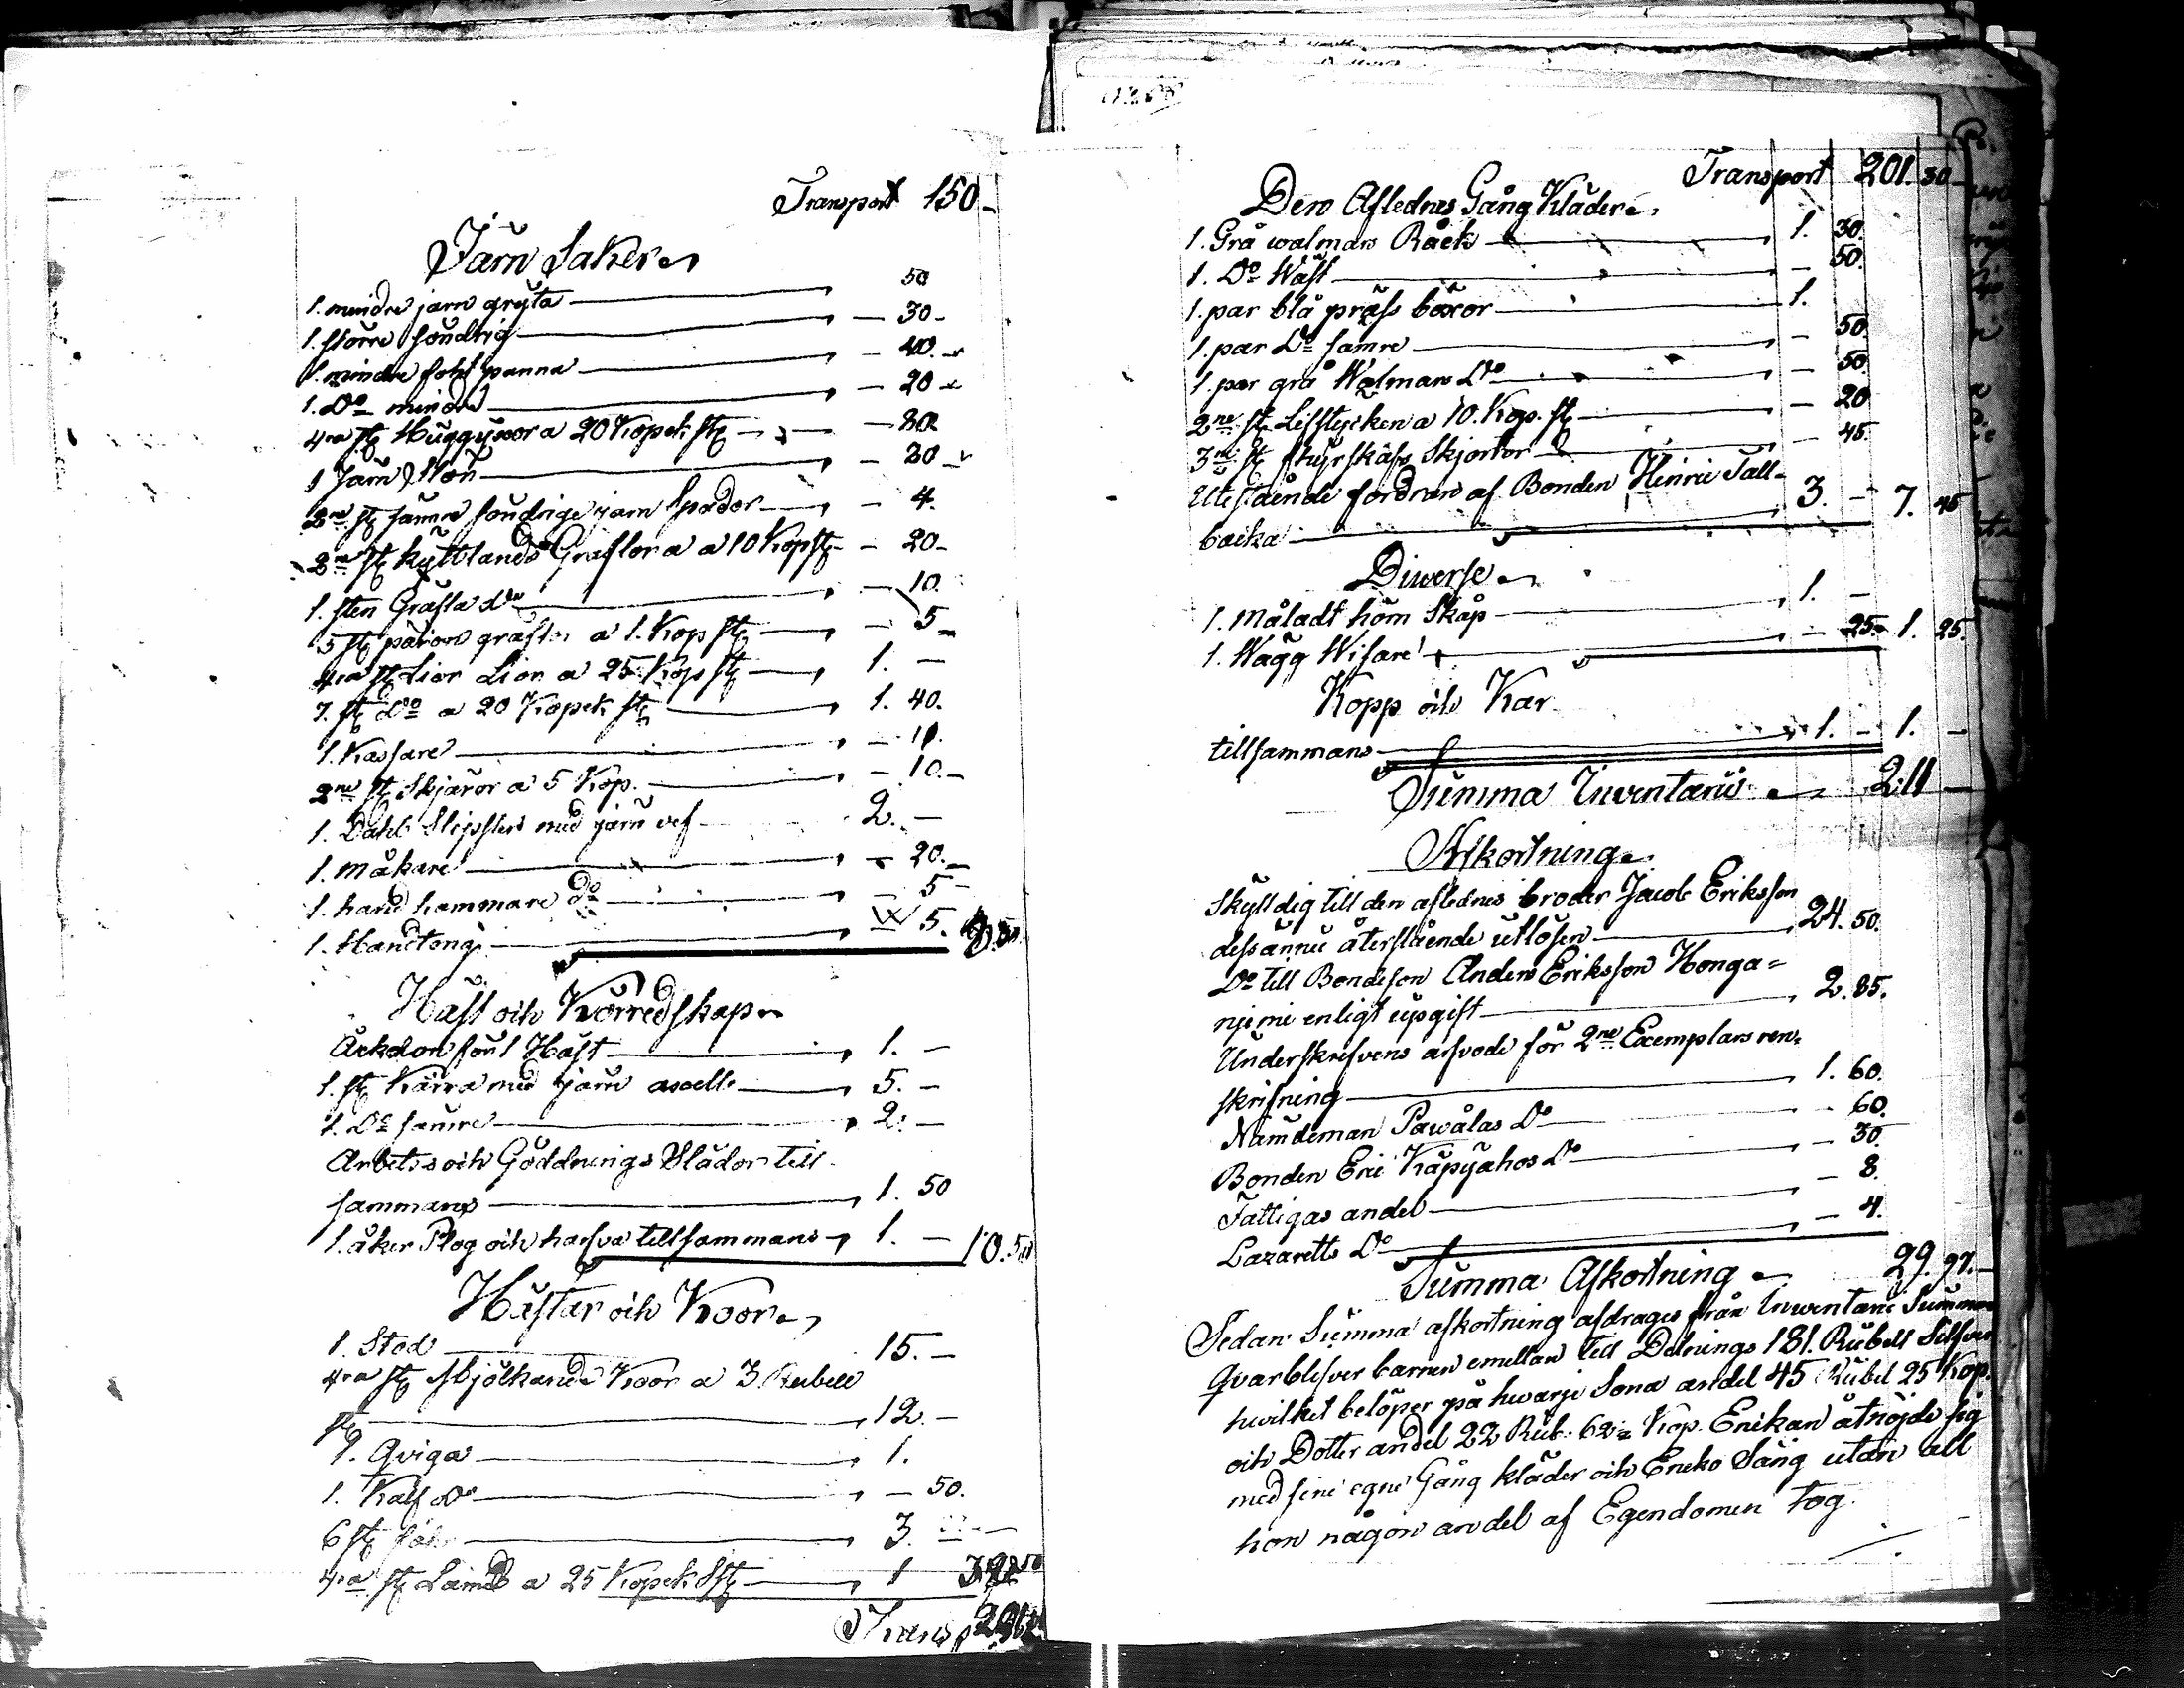 Transport 150 -
Järn Saker
1. mindre jarn gryta 50
1. större söndrig - 30 -
1. mindre fot panna - 40. -
1. Do mindre - 20 -
4ra st Huggyxor a 20 Kopek st - 80
1 Järn Stör - 20 -
2ne st sämre söndrige jarn Spador - 4.
2ne st kyttlands Graflor a 10 Kop st - 20 -
1. sten Grafla do - 10.
5 st päron graflor a 1. Kop st - 5 -
4ra st Lior Lior a 25 Kop st 1. -
7. st do a 20 Kopek st 1. 40.
1. Kassare - 10.
2ne st Skjäror a 5 Kop. - 10. -
1. Dahl Slipsten med järn vef 2. -
1. måkare - 20. -
1. hand hammare do - 5 -
1. Handtong 5.
Häst och Körredskap
Åckdon för 1 Häst 1. -
1. st Kärra med järn axell 5. -
1. Do sämre 2. -
Arbets och Göddnings Slädor till
sammans 1. 50
1. åker Plog och harfva tillsammans 1. - 10. 50
Hästar och Koor
1. Stod 15. -
4ra st Mjölkande Koor a 3 Rubell
st 12. -
1. Qviga 1.
1. Kalf do - 50.
6 st får 3. -
4ra st Lamb a 25 Kopek St 1
Transp
Transport 201. 30 -
Den Aflednes Gång Kläder
1. Grå walmars Råck 1. 30.
1. Do Wäst - 50.
1. par blå präss böxor 1.
1. par Do samre - 50.
1. par grå Walmars Do - 50.
2ne st Lifstycken a 10. Kop. st - 20
3ne st Skjortor - 45.
Utestående fordran af Bonden Henric Tall=
backa 3. - 7. 45
Diwerse
1. Måladt hörn Skåp 1. -
1. Wägg Wisare - 25. 1. 25.
Kopp och Kar
tillsammans 1. - 1. -
Summa Inventarii 211 -
Afkortning
Skylldig till den aflednes broder Jacob Eriksson
dess ännu återstående utlösen 24. 50.
Do till Bondeson Anders Eriksson Honga=
njemi enligt upgift 2. 85.
Underskrefvens arfvode för 2ne Exemplars ren=
skrifning 1. 60.
Nämdeman Pawålas Do - 60.
Bonden Eric Käpyahos Do - 30.
Fattigas andel - 8.
Lazaretts Do - 4.
Summa Afkortning 29. 97. -
Sedan Summa afkortning afdrages från Inventarii Summan
Qvarblifver barnen emellan till Delnings 181. Rubell Silfver
hwilket belöper på hwarje Sons andel 45 Rubel 25 Kop.
och Dotter andel 22 Rub. 62 Kop. Enckan åtnöjde sig
med sine egne Gång kläder och Encko Säng utan all
hon någon andel af Egendomen tog.